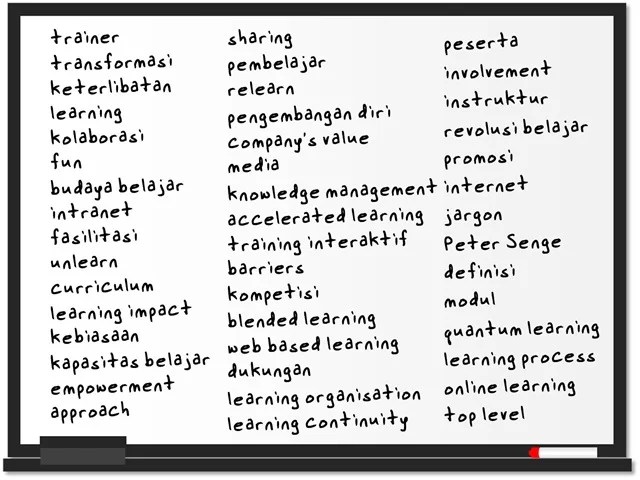 trainer
transformasi
keterlibatan
learning
kolaborasi
fun
budaya belajar
intranet
fasilitasi
unlearn
curriculum
learning impact
kebiasaan
kapasitas belajar
empowerment
approach
sharing
pembelajar
relearn
pengembangan diri
company's value
media
knowledge management
accelerated learning
training interaktif
barriers
kompetisi
blended learning
web based learning
dukungan
learning organisation
learning continuity
peserta
involvement
instruktur
revolusi belajar
promosi
internet
jargon
Peter Senge
definisi
modul
quantum learning
learning process
online learning
top level